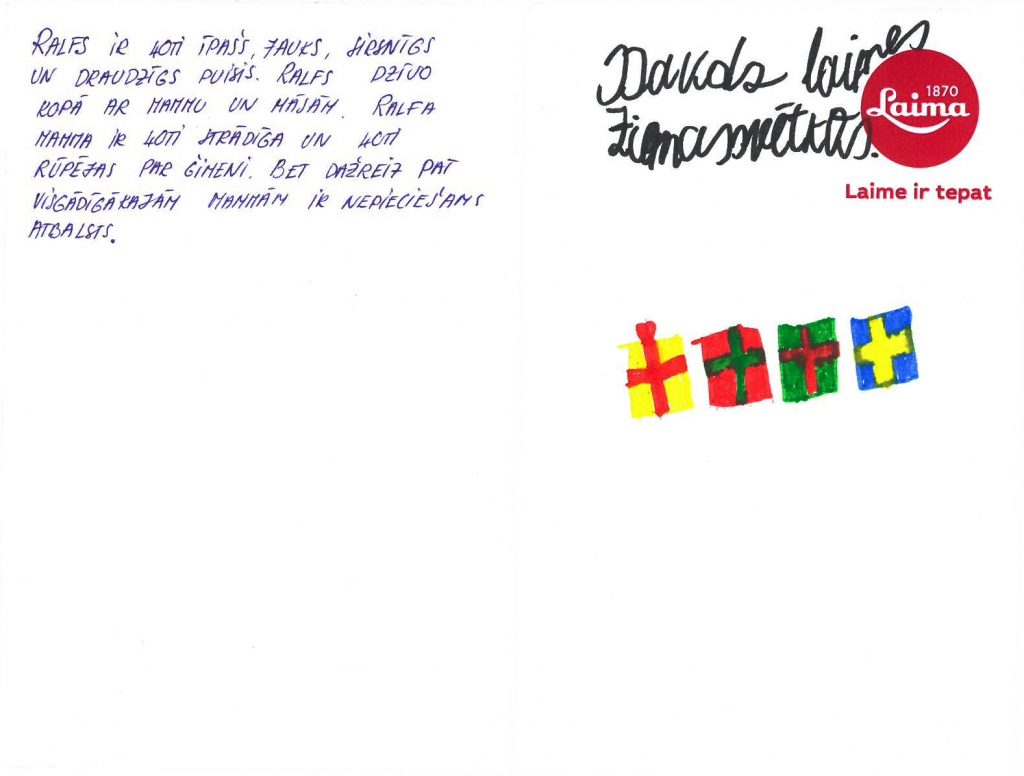 RALFS IR ĻOTI ĪPAŠS, JAUKS, SIRSNĪGS
UN DRAUDZĪGS PUISIS. RALFS DZĪVO
KOPĀ AR MAMMU UN MĀSĀM. RALFA
MAMMA IR ĻOTI STRĀDĪGA UN ĻOTI
RŪPĒJAS PAR ĢIMENI. BET DAŽREIZ PAT
VISGĀDĪGĀKAJĀM MAMMĀM IR NEPIECIEŠAMS
ATBALSTS.
laimes
Ziemassvētkos.
1870
Laima
Laime ir tepat